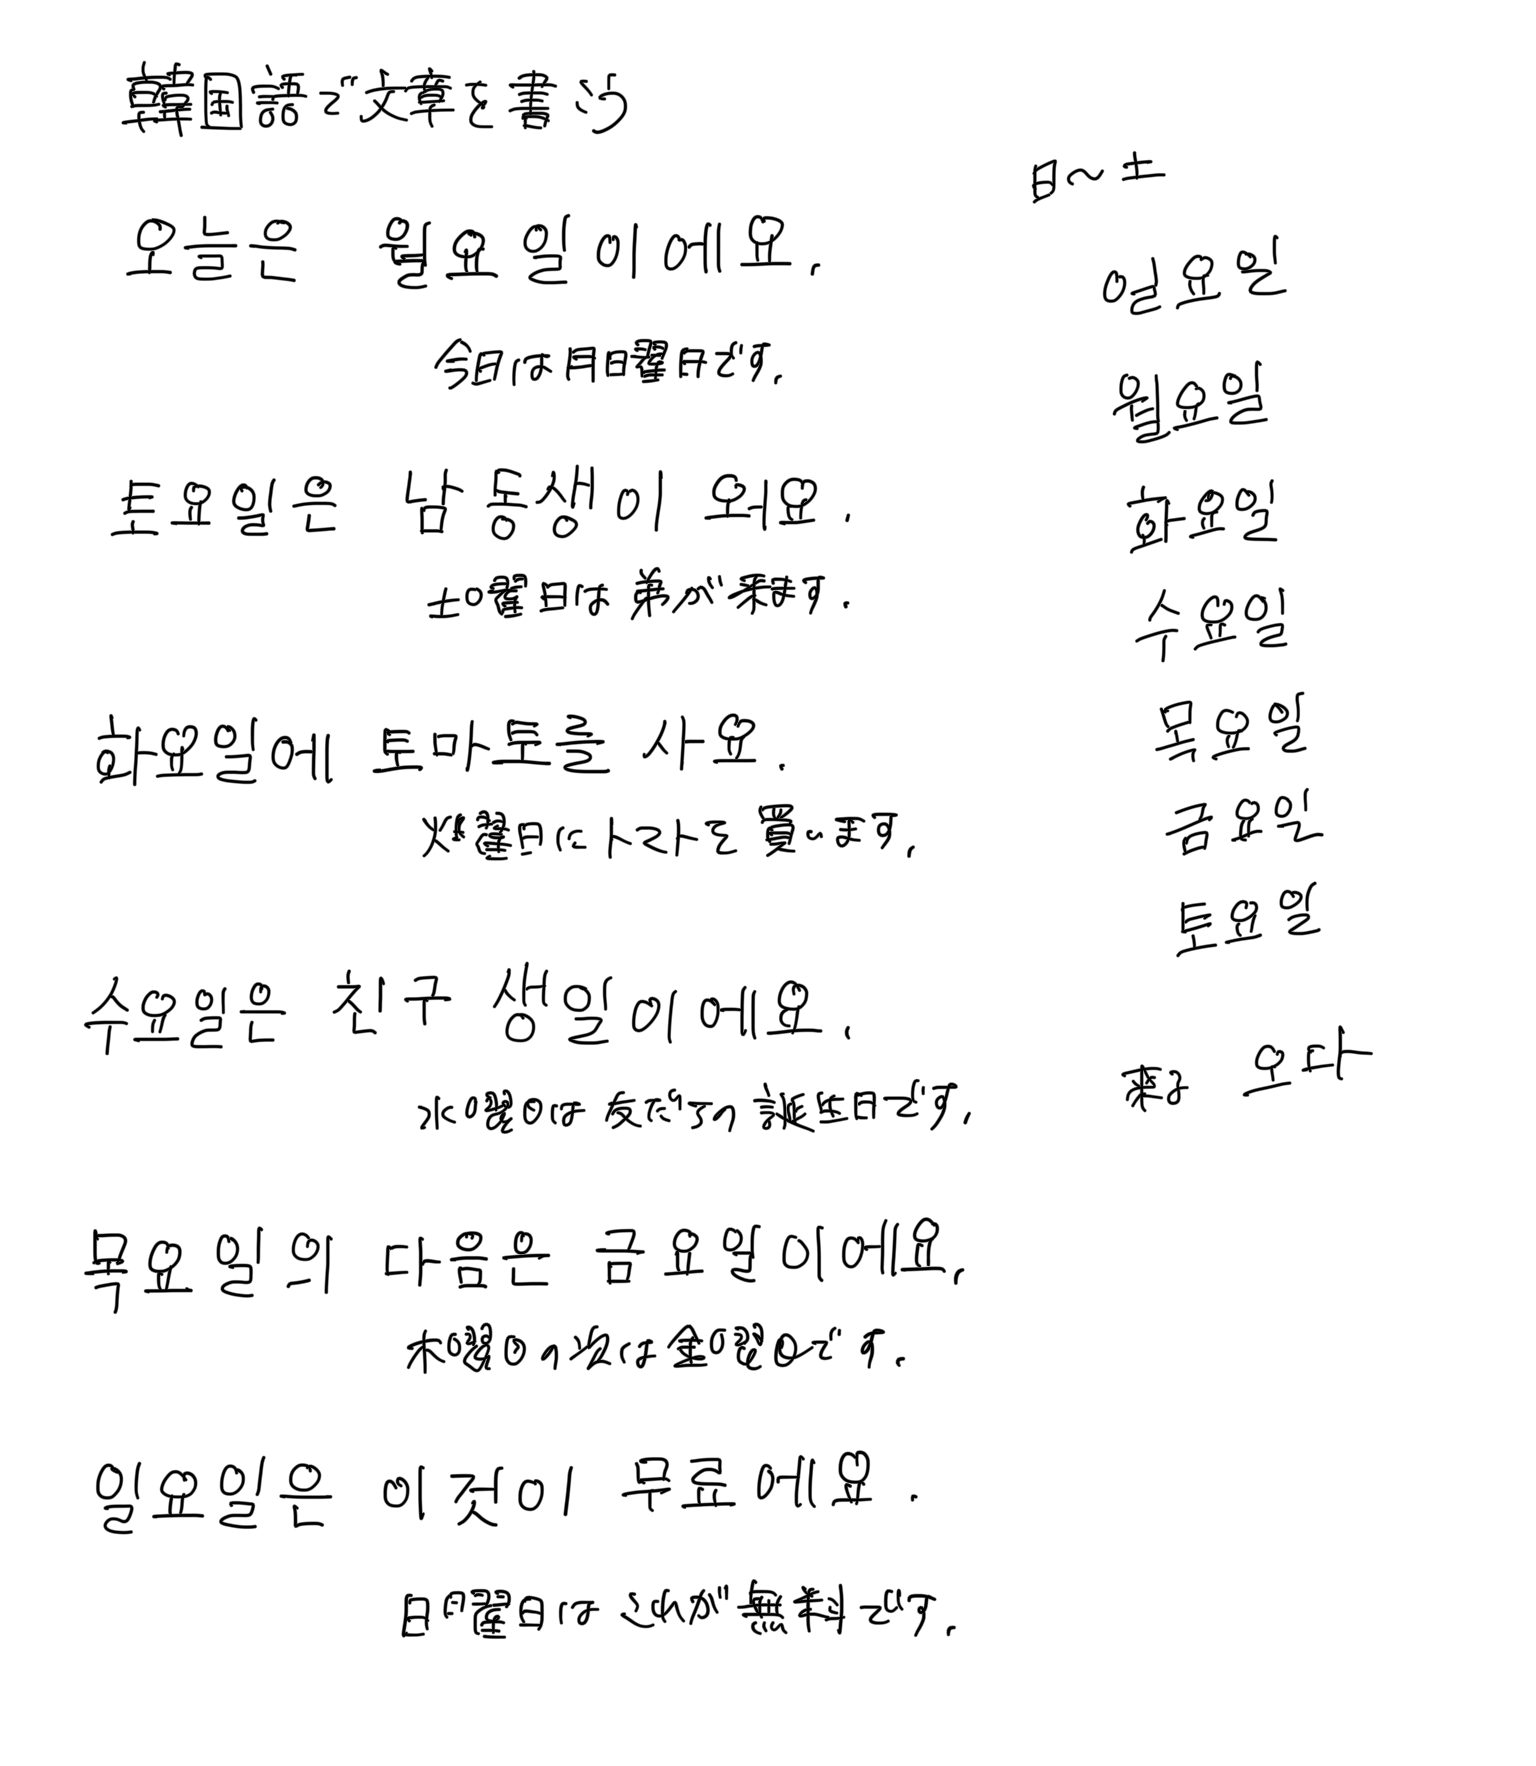 韓国語で文章を書こう
오늘은 월요일이에요.
今日は月曜日です.
토요일은 남동생이 와요.
土曜日は弟が来ます.
화요일에 토마토를 사요.
火曜日にトマトを買います.
수요일은 친구 생일이에요.
水曜日は友だちの誕生日です.
목요일의 다음은 금요일이에요.
木曜日の次は金曜日です.
일요일은 이것이 무료에요.
日曜日はこれが無料です.
日〜土
일요일
월요일
화요일
수요일
목요일
금요일
토요일
来る 오다